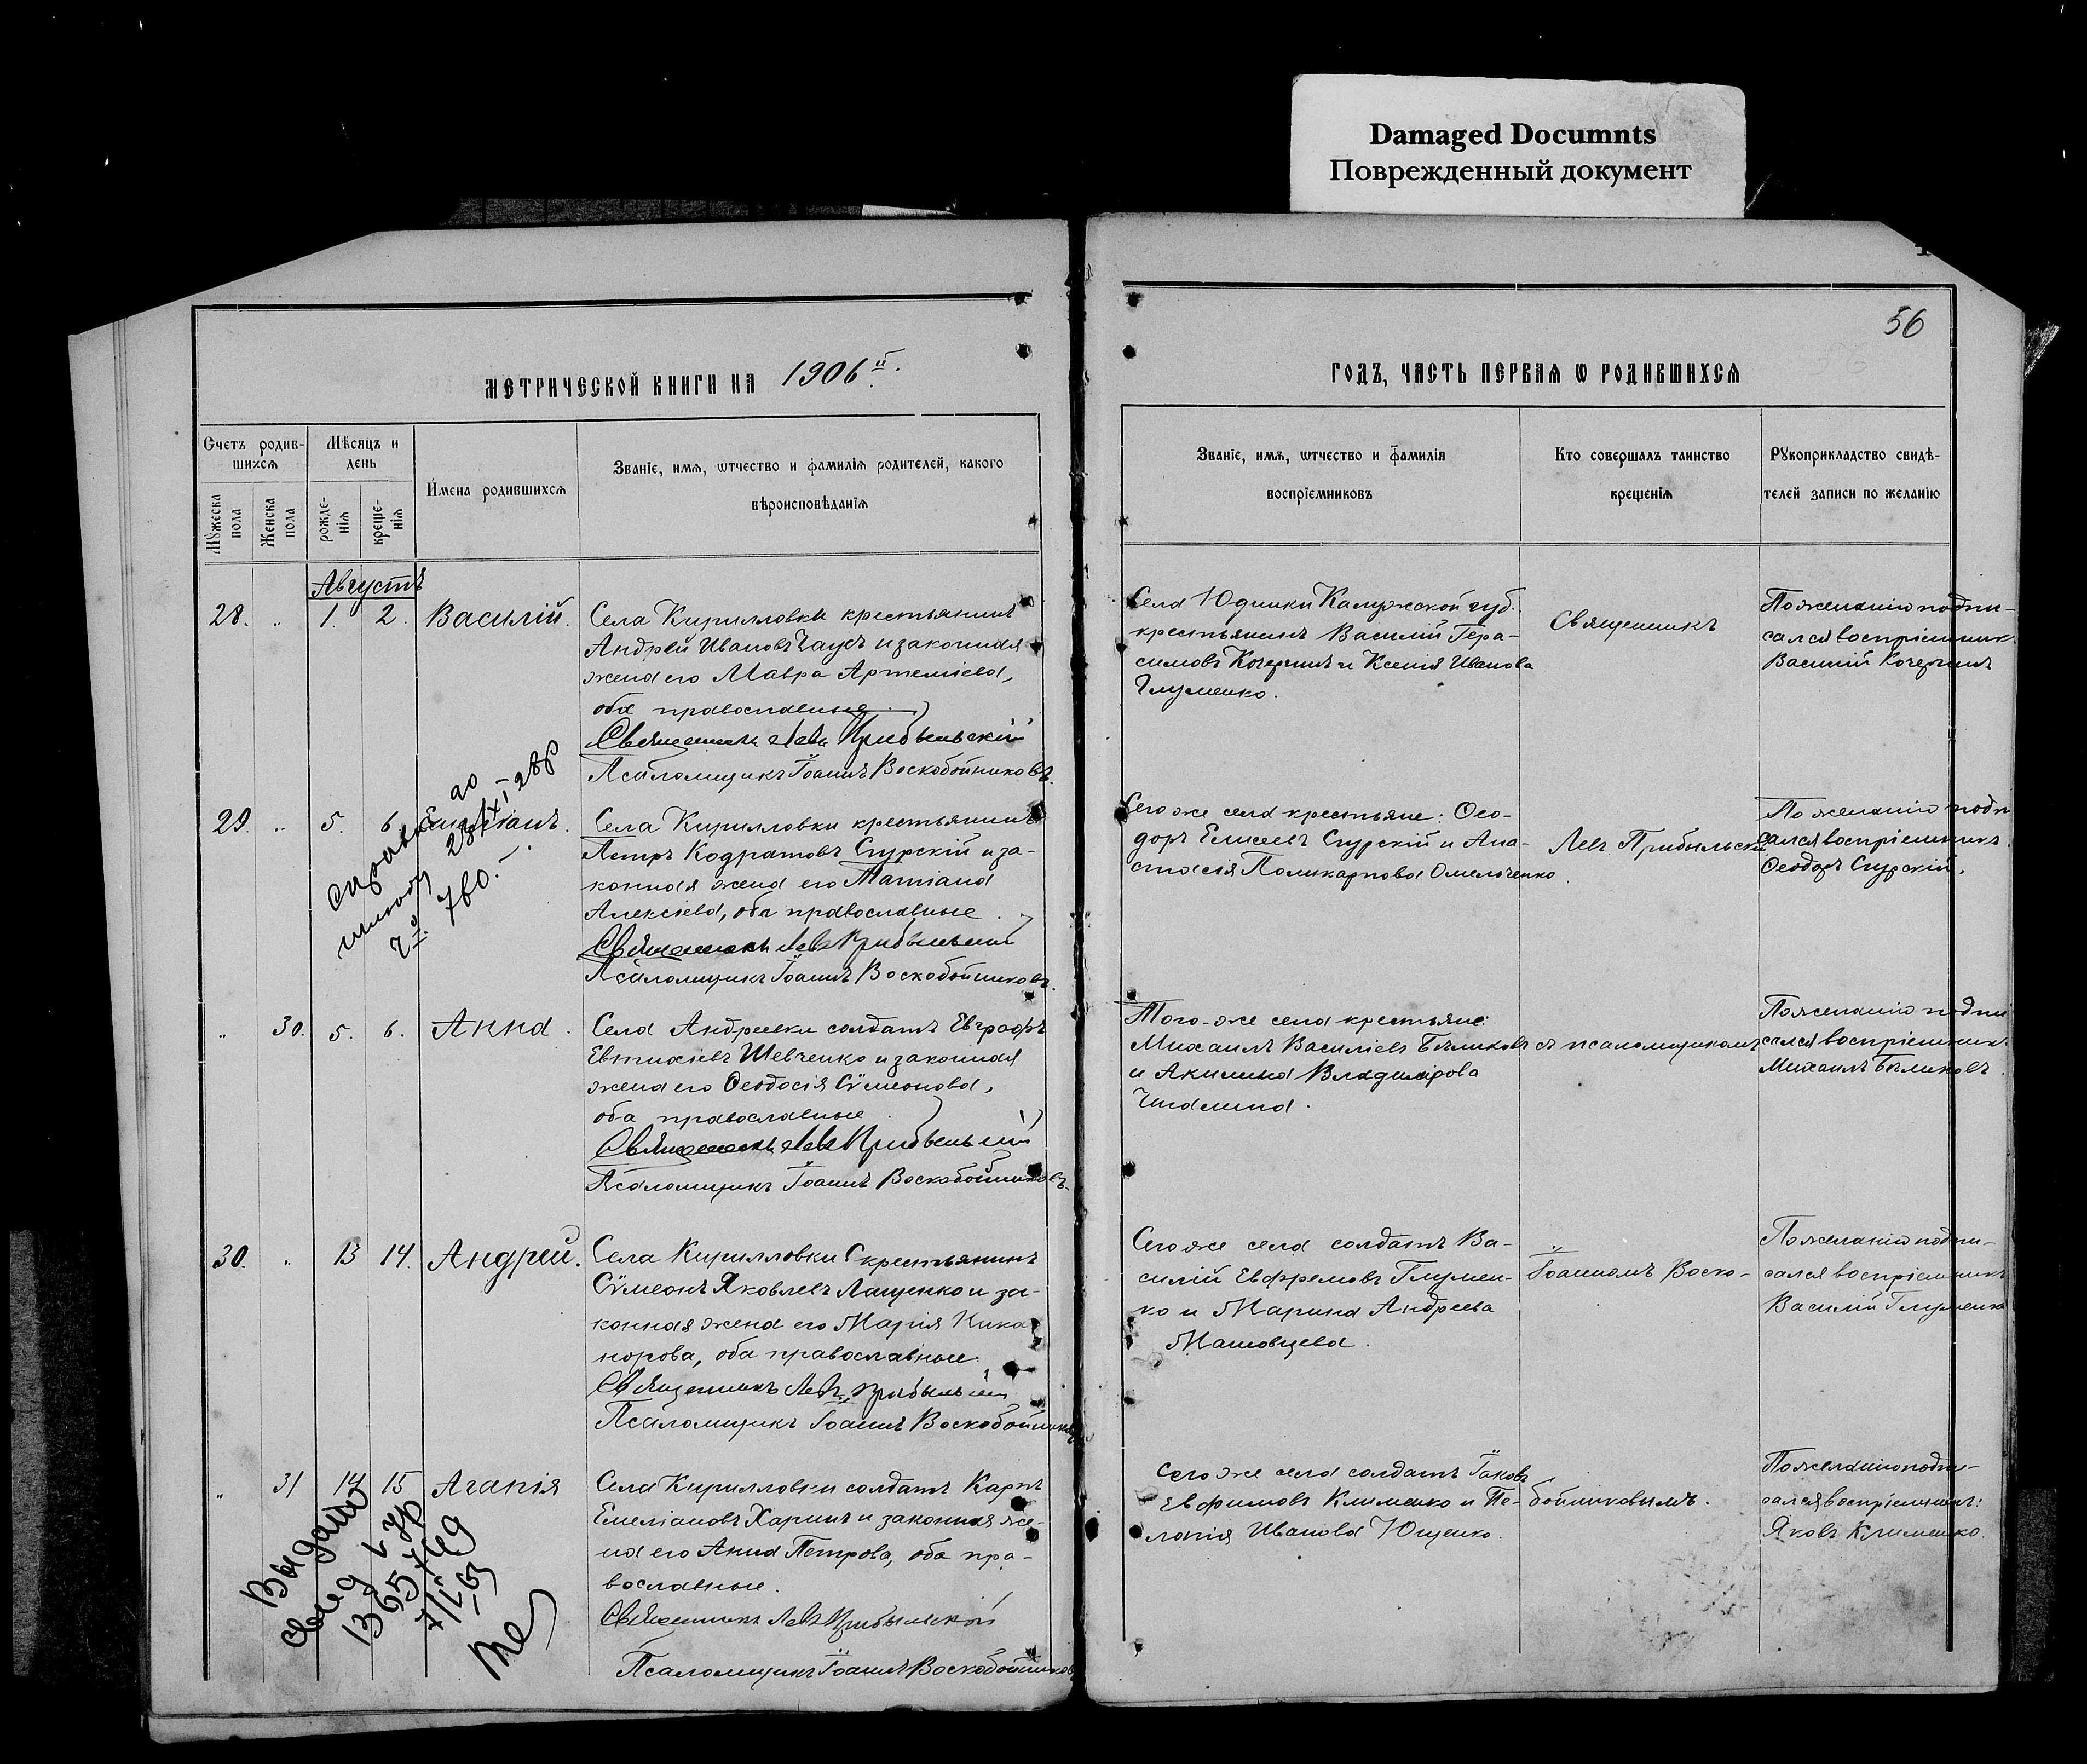 Damaged Documnts
Поврежденный документ
56
МЕТРИЧЕСКОЙ КНИГИ НА 1906й.
ГОДЪ, ЧАСТЬ ПЕРВАЯ Ѡ РОДИВШИХСЯ
Счетъ родив-
шихся
Мужеска пола
Женска пола
Мѣсяцъ и
день
рожде-
нія
креще-
нія
Имена родившихся
Званіе, имя, ѿтчество и фамилія родителей, какого
вѣроисповѣданія
Званіе, имя, ѿтчество и фамилія
воспріемниковъ
Кто совершалъ таинство
крещенія
Рукоприкладство свидѣ-
телей записи по желанію
Августъ
28. „ 1. 2. Василій.
Села Кирилловки крестьянинъ
Андрей Ивановъ и законная
жена его Мавра Артеміева,
оба православные
Священникъ Левъ Прибыльскій
Псаломщикъ Іоаннъ Воскобойниковъ.
Села Юдинки Калужской губ.
крестьянинъ Василій Гера-
симовъ Кочергинъ и Ксенія Иванова
Глуменко.
Священникъ
По желанію подпи-
сался воспріемник
Василій Кочергинъ
29. „ 5. 6
Села Кирилловки крестьянинъ
Петръ Кодратовъ Спурскій и за-
конная жена его Татіана
Алексіева, оба православные.
Священникъ Левъ Прибыльскій
Псаломщикъ Іоаннъ Воскобойниковъ.
Сего же села крестьяне: Ѳео-
доръ Елисеевъ Спурскій и Ана-
стасія Поликарпова Омельченко.
Левъ Прибыльскій
По желанію подп
сался воспріемникъ
Ѳеодоръ Спурскій.
760.
„ 30. 5. 6. Анна.
Села Андреевки солдатъ Евграфъ
Евтихіевъ Шевченко и законная
жена его Ѳеодосія Сѵмеонова,
оба православные
Священникъ Левъ Прибыльскій
Псаломщикъ Іоаннъ Воскобойниковъ.
Того-же села крестьяне:
Михаилъ Василіевъ Бѣликовъ
и Акилина Владимірова
съ псаломщикомъ
По желанію подпи
сался воспріемникъ
Михаилъ Бѣликовъ.
30. „ 13 14. Андрей.
Села Кирилловки крестьянинъ
Сѵмеонъ Яковлевъ Лащенко и за-
конная жена его Марія Ника-
норова, оба православные.
Священникъ Левъ Прибыльскій
Псаломщикъ Іоаннъ Воскобойниковъ
Сего же села солдатъ Ва-
силій Евфремовъ Глумен-
ко и Марина Андреева
Іоанномъ Воско-
По желанію подпи-
сался воспріемникъ
Василій Глуменко
„ 31 14 15 Агапія
Села Кирилловки солдатъ Карпъ
Емеліановъ Харинъ и законная же-
на его Анна Петрова, оба пра-
вославные.
Священникъ Левъ Прибыльскій
Псаломщикъ Іоаннъ Воскобойниковъ
Сего же села солдатъ Іаковъ
Евфимовъ Клименко и Пе-
лагія Иванова Ющенко.
бойниковымъ.
По желанію подпи-
сался воспріемникъ:
Яковъ Клименко.
Выдано